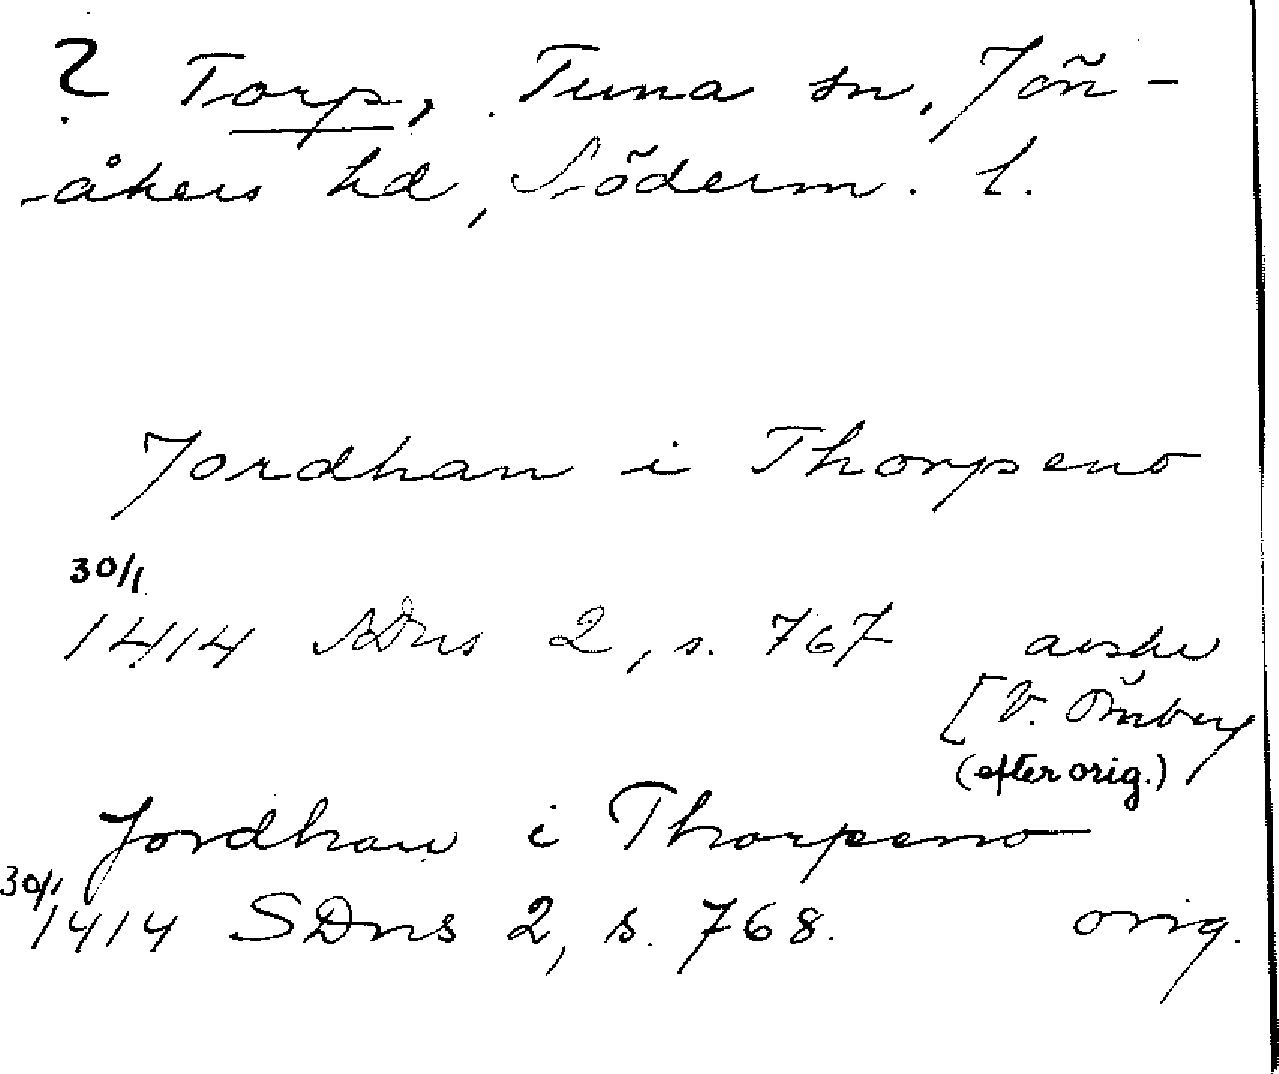 ? Torp, Tuna sn, Jön-
-åkers hd, Söderm. l.
Jordhan i Thorpeno
30/1
1414 SDns 2, s. 767 avskr
[V. Örnberg
(efter orig.)
Jordhan i Thorpeno
30/1
1414 SDns 2, s. 768. orig.